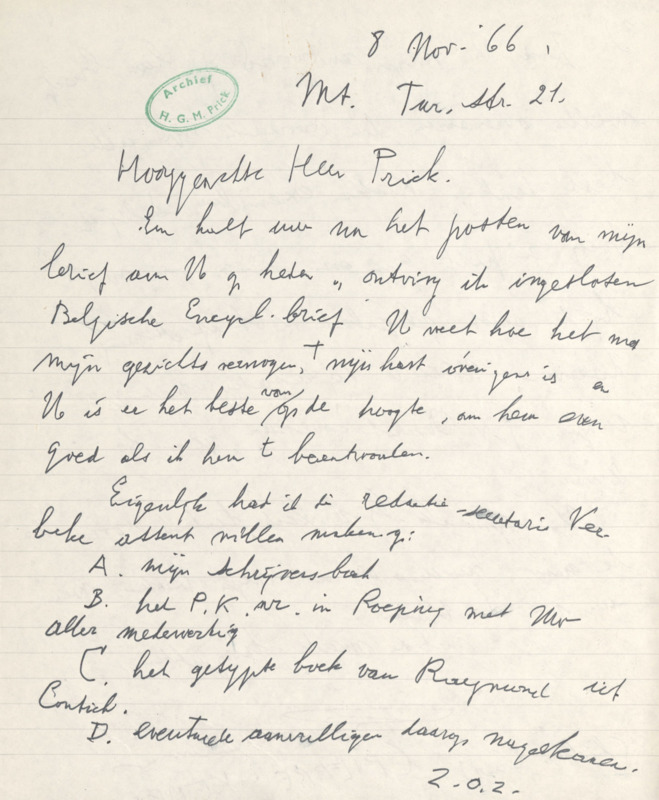 8 Nov. '66.
Archief
H. G. M. Prick
Mt. Tur. str. 21.
Hooggeachte Heer Prick.
Een half uur na het posten van mijn
brief aan U op heden, ontving ik ingesloten
Belgische Encycl. brief U weet hoe het met
mijn gezichts vermogen, + mijn hart overigens is en
U is er het beste van op de hoogte, om hem even
goed als ik hem te beantwoorden.
Eigenlijk had ik de redactie-secretaris Ver-
beke attent willen maken op:
A. mijn schrijversboek
B. het P.K. nr. in Roeping met
aller medewerking
C. het getypte boek van Raymond uit
Contich.
D. eventueele aanvullingen daarop nagekomen.
Z.O.Z.